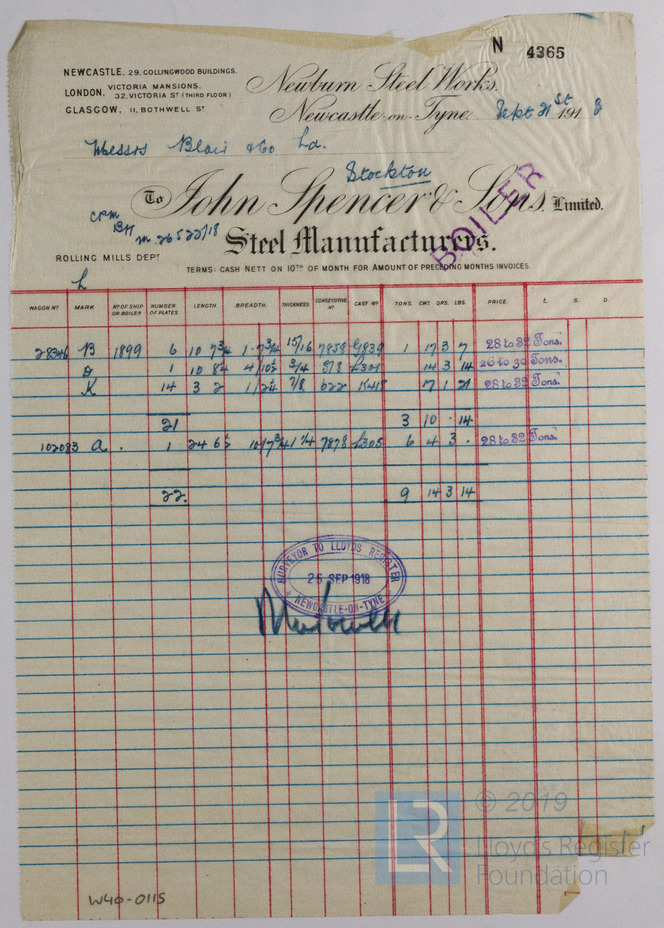 N 4365
NEWCASTLE, 29. COLLINGWOOD BUILDINGS.
LONDON, VICTORIA MANSIONS. 32, VICTORIA ST (THIRD FLOOR)
GLASGOW, 11, BOTHWELL ST
Newburn Steel Works,
Newcastle-on-Tyne, Sept 21st 1918
Messrs Blair & Co Ld.
Stockton
To John Spencer & Sons, Limited.
BOILER
Steel Manufacturers.
ROLLING MILLS DEPT
TERMS: CASH NETT ON 10TH OF MONTH FOR AMOUNT OF PRECEDING MONTHS INVOICES.
WAGON No MARK No OF SHIP OR BOILER NUMBER OF PLATES LENGTH BREADTH. THICKNESS. CONSECUTIVE No CAST No TONS. CWT. QRS. LBS. PRICE. L. S. D.
28346 B 1899 6 10 7 3/4 15/16 7858 1 17 3 7 28 to 32 Tons.
1 3/4 578 14 3 14 26 to 30 Tons.
K 14 3 2 7/8 622 17 1 21 28 to 32 Tons.
21 3 10 . 14
102083 a . 1 24 1 1/4 7878 6 4 3 . 28 to 32 Tons.
22. 9 14 3 14
SURVEYOR TO LLOYDS REGISTER
25 SEP 1918
NEWCASTLE-ON-TYNE
LR
© 2019
Lloyd's Register
Foundation
W40-0115